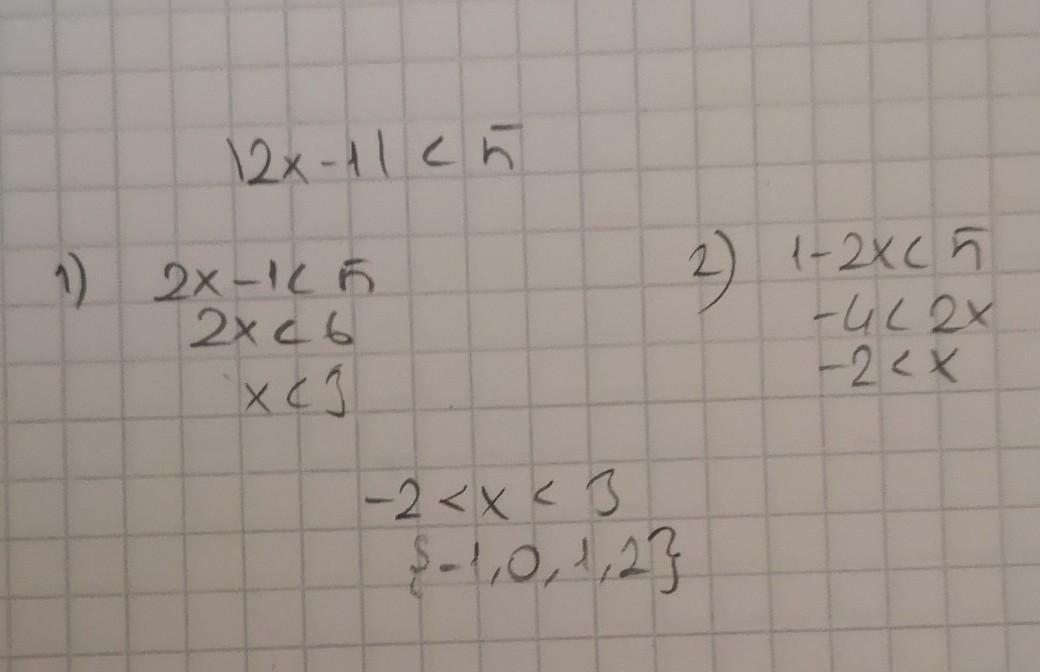 |2x-1| < 5
1) 2x-1 < 5
2x < 6
x < 3
2) 1-2x < 5
-4 < 2x
-2 < x
-2 < x < 3
{-1, 0, 1, 2}